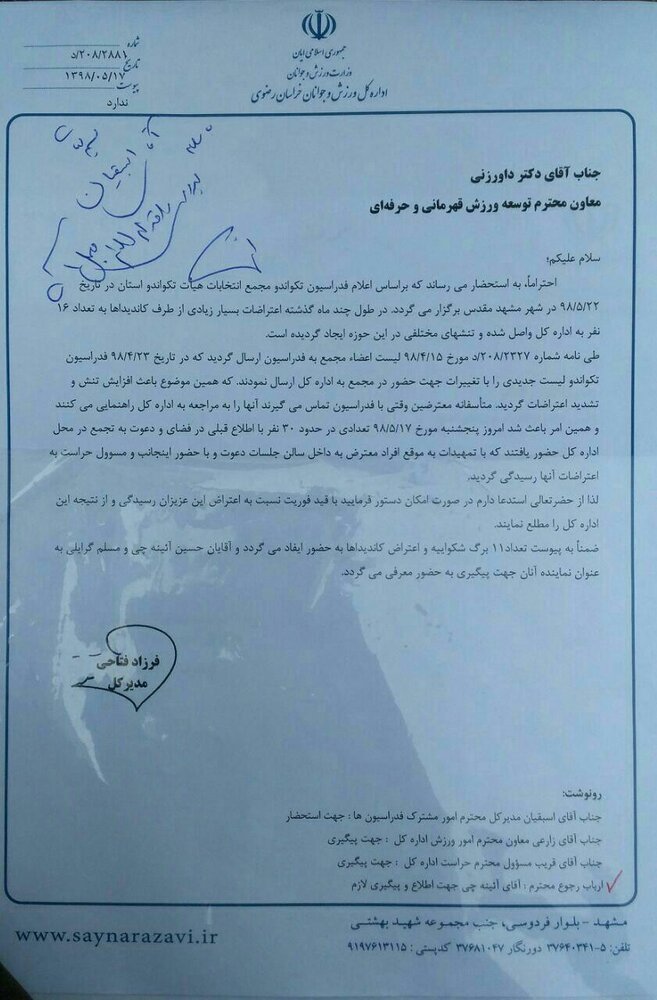 جمهوری اسلامی ایران
وزارت ورزش و جوانان
اداره کل ورزش و جوانان خراسان رضوی
شماره ۲۰۸/۲۸۸۱/د
تاریخ ۱۳۹۸/۰۵/۱۷
پیوست ندارد
جناب آقای دکتر داورزنی
معاون محترم توسعه ورزش قهرمانی و حرفه‌ای
سلام علیکم؛
احتراماً، به استحضار می رساند که براساس اعلام فدراسیون تکواندو مجمع انتخابات هیأت تکواندو استان در تاریخ
۹۸/۵/۲۲ در شهر مشهد مقدس برگزار می گردد. در طول چند ماه گذشته اعتراضات بسیار زیادی از طرف کاندیداها به تعداد ۱۶
نفر به اداره کل واصل شده و تنشهای مختلفی در این حوزه ایجاد گردیده است.
طی نامه شماره ۲۰۸/۲۳۲۷/د مورخ ۹۸/۴/۱۵ لیست اعضاء مجمع به فدراسیون ارسال گردید که در تاریخ ۹۸/۴/۲۳ فدراسیون
تکواندو لیست جدیدی را با تغییرات جهت حضور در مجمع به اداره کل ارسال نمودند. که همین موضوع باعث افزایش تنش و
تشدید اعتراضات گردید. متأسفانه معترضین وقتی با فدراسیون تماس می گیرند آنها را به مراجعه به اداره کل راهنمایی می کنند
و همین امر باعث شد امروز پنجشنبه مورخ ۹۸/۵/۱۷ تعدادی در حدود ۳۰ نفر با اطلاع قبلی در فضای و دعوت به تجمع در محل
اداره کل حضور یافتند که با تمهیدات به موقع افراد معترض به داخل سالن جلسات دعوت و با حضور اینجانب و مسوول حراست به
اعتراضات آنها رسیدگی گردید.
لذا از حضرتعالی استدعا دارم در صورت امکان دستور فرمایید با قید فوریت نسبت به اعتراض این عزیزان رسیدگی و از نتیجه این
اداره کل را مطلع نمایند.
ضمناً به پیوست تعداد۱۱ برگ شکواییه و اعتراض کاندیداها به حضور ایفاد می گردد و آقایان حسین آئینه چی و مسلم گرایلی به
عنوان نماینده آنان جهت پیگیری به حضور معرفی می گردد.
فرزاد فتاحی
مدیرکل
رونوشت:
جناب آقای اسبقیان مدیرکل محترم امور مشترک فدراسیون ها : جهت استحضار
جناب آقای زارعی معاون محترم امور ورزش اداره کل : جهت پیگیری
جناب آقای قریب مسؤول محترم حراست اداره کل : جهت پیگیری
ارباب رجوع محترم : آقای آئینه چی جهت اطلاع و پیگیری لازم
مشهد - بلوار فردوسی، جنب مجموعه شهید بهشتی
تلفن: ۵-۳۷۶۴۰۳۴۱ دورنگار ۳۷۶۸۱۰۴۷ کدپستی : ۹۱۹۷۶۱۳۱۱۵
www.saynarazavi.ir